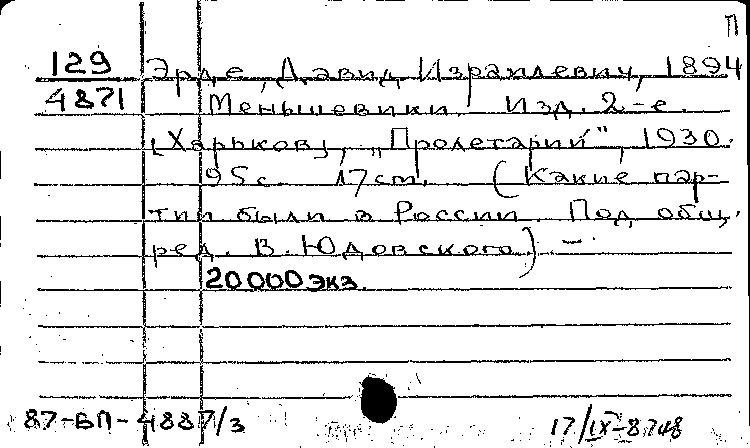 П
129 Эрде, Давид Израилевич, 1894
4871 Меньшевики. Изд. 2-е.
[Харьков], „Пролетарий", 1930.
95 с. 17 cm. (Какие пар-
тии были в России. Под общ.
ред. В. Юдовского) —
20 000 экз.
87-БП-4887/3
17/IX-87